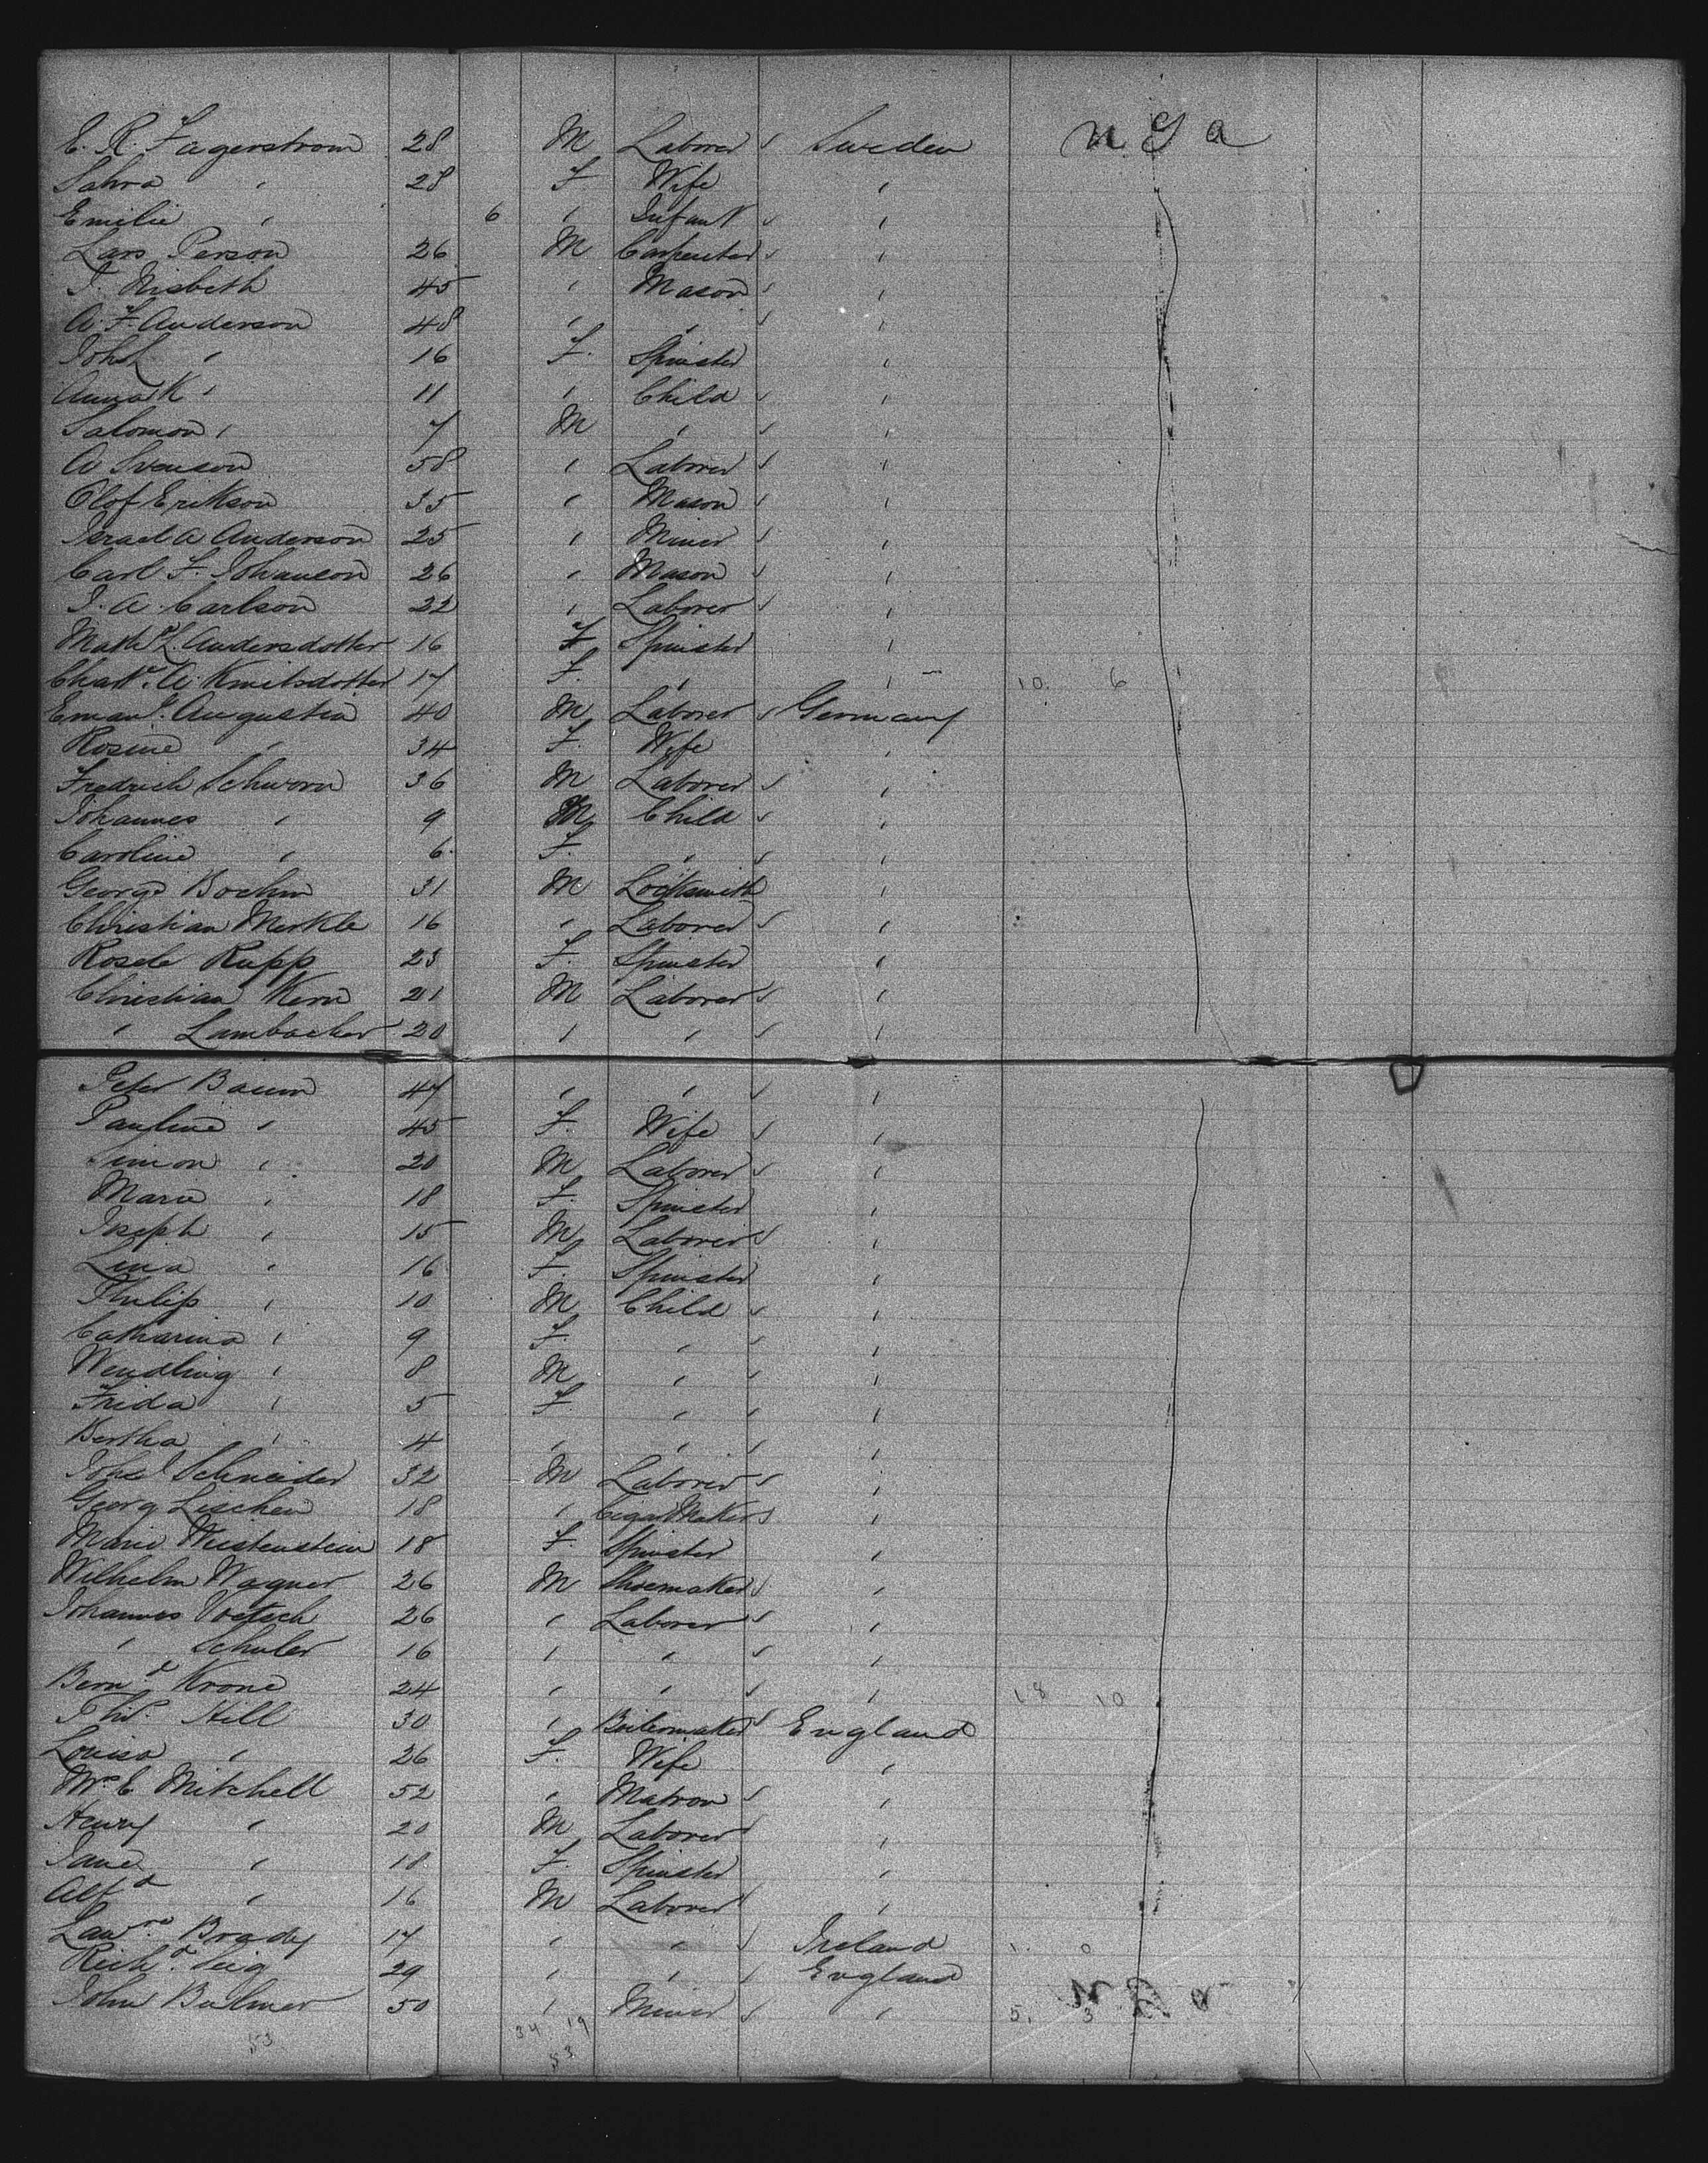 E. R. Fagerstrom 28 M Laborer Sweden U S a
Sahra " 28 F Wife "
Emilie " 6 " Infant "
Lars Person 26 M Carpenter "
J. Nisbeth 45 " Mason "
A. F. Anderson 48 " " "
Joh " 16 F. Spinster "
Anna K " 11 " Child "
Salomon " 7 M " "
A Svenson 58 " Laborer "
Olof Erikson 35 " Mason "
Israel A Anderson 25 " Miner "
Carl F. Johanson 26 " Mason "
J. A. Carlson 22 " Laborer "
Math L. Andersdotter 16 F Spinster "
Chatt. A. Knutsdotter 17 F. " " 10. 6
Emanl. Augustin 40 M Laborer Germany
Rosine " 34 F. Wife "
Fredrich Schworn 36 M Laborer "
Johannes " 9 M Child "
Caroline " 6 F. " "
Georg Boehm 31 M Locksmith "
Christian Merkle 16 " Laborer "
Rosele Rupp 23 F. Spinster "
Christian Kern 21 M Laborer "
" Lambacher 20 " " "
Peter Baum 47 " " "
Pauline " 45 F. Wife "
Simon " 20 M Laborer "
Marie " 18 F. Spinster "
Joseph " 15 M Laborer "
Lina " 16 F. Spinster "
Philip " 10 M Child "
Catharina " 9 F. " "
Wendling " 8 M " "
Frida " 5 F. " "
Bertha " 4 " " "
Schneider 32 M Laborer "
Georg Lischen 18 " Cigar Maker "
Marie Weistenstein 18 F. Spinster "
Wilhelm Wagner 26 M Shoemaker "
Johannes Voetsch 26 " Laborer "
" Schuler 16 " " "
Bernd. Krone 24 " " " 18 10
Hill 30 " Boilermaker England
Louisa " 26 F. Wife "
Mrs. C Mitchell 52 " Matron "
Henry " 20 M Laborer "
Jane " 18 F. Spinster "
Alfd " 16 M Laborer "
Lawre. Brady 17 " " Ireland 1. 0
Richd. 29 " " England
John Bulmer 50 " Miner " 5. 3
34 19
53 53